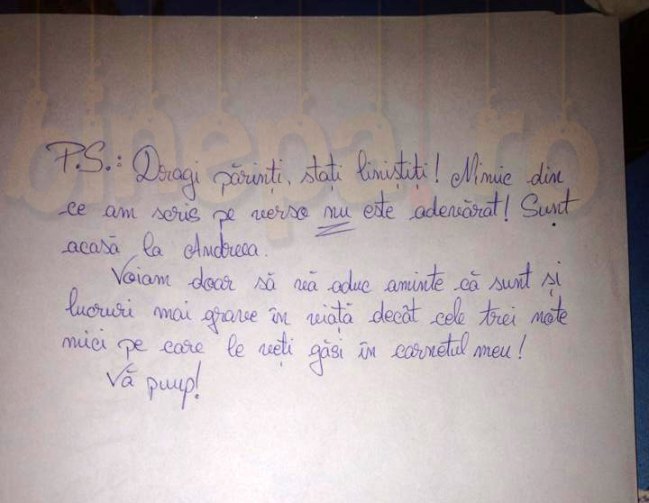 P.S.: Dragi părinți, stați liniștiți! Nimic din
ce am scris pe verso nu este adevărat! Sunt
acasă la Andreea.
Voiam doar să vă aduc aminte că sunt și
lucruri mai grave în viață decât cele trei note
mici pe care le veți găsi în carnetul meu!
Vă pup!